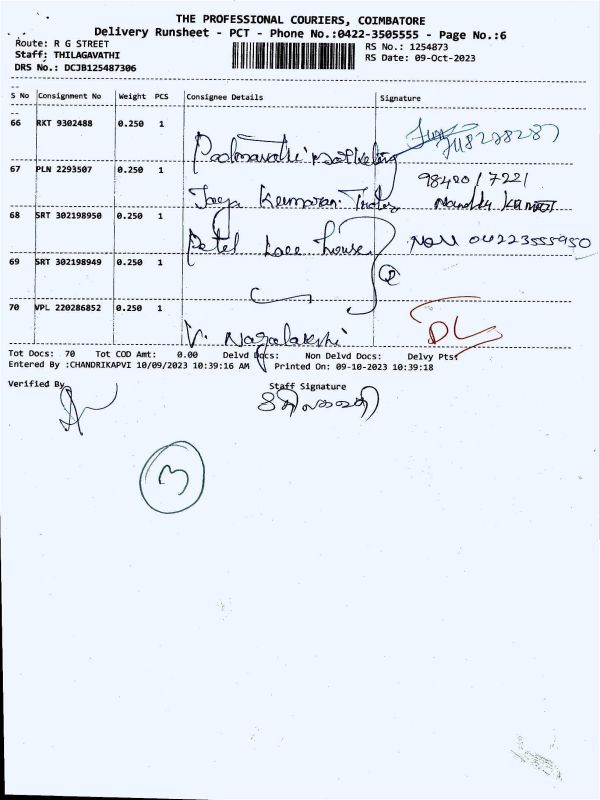 THE PROFESSIONAL COURIERS, COIMBATORE
Delivery Runsheet - PCT - Phone No.:0422-3505555 - Page No.:6
Route: R G STREET
RS No.: 1254873
Staff: THILAGAVATHI
RS Date: 09-Oct-2023
DRS No.: DCJB125487306
S No Consignment No Weight PCS Consignee Details Signature
66 RKT 9302488 0.250 1
Padmavathi Marketing
67 PLN 2293507 0.250 1
98420/7221
Jaya Kumaran
68 SRT 302198950 0.250 1
Patel Lace house 04223555950
69 SRT 302198949 0.250 1
70 VPL 220286852 0.250 1
V. Nagalakshi DL
Tot Docs: 70 Tot COD Amt: 0.00 Delvd Docs: Non Delvd Docs: Delvy Pts:
Entered By :CHANDRIKAPVI 10/09/2023 10:39:16 AM Printed On: 09-10-2023 10:39:18
Verified By Staff Signature
3